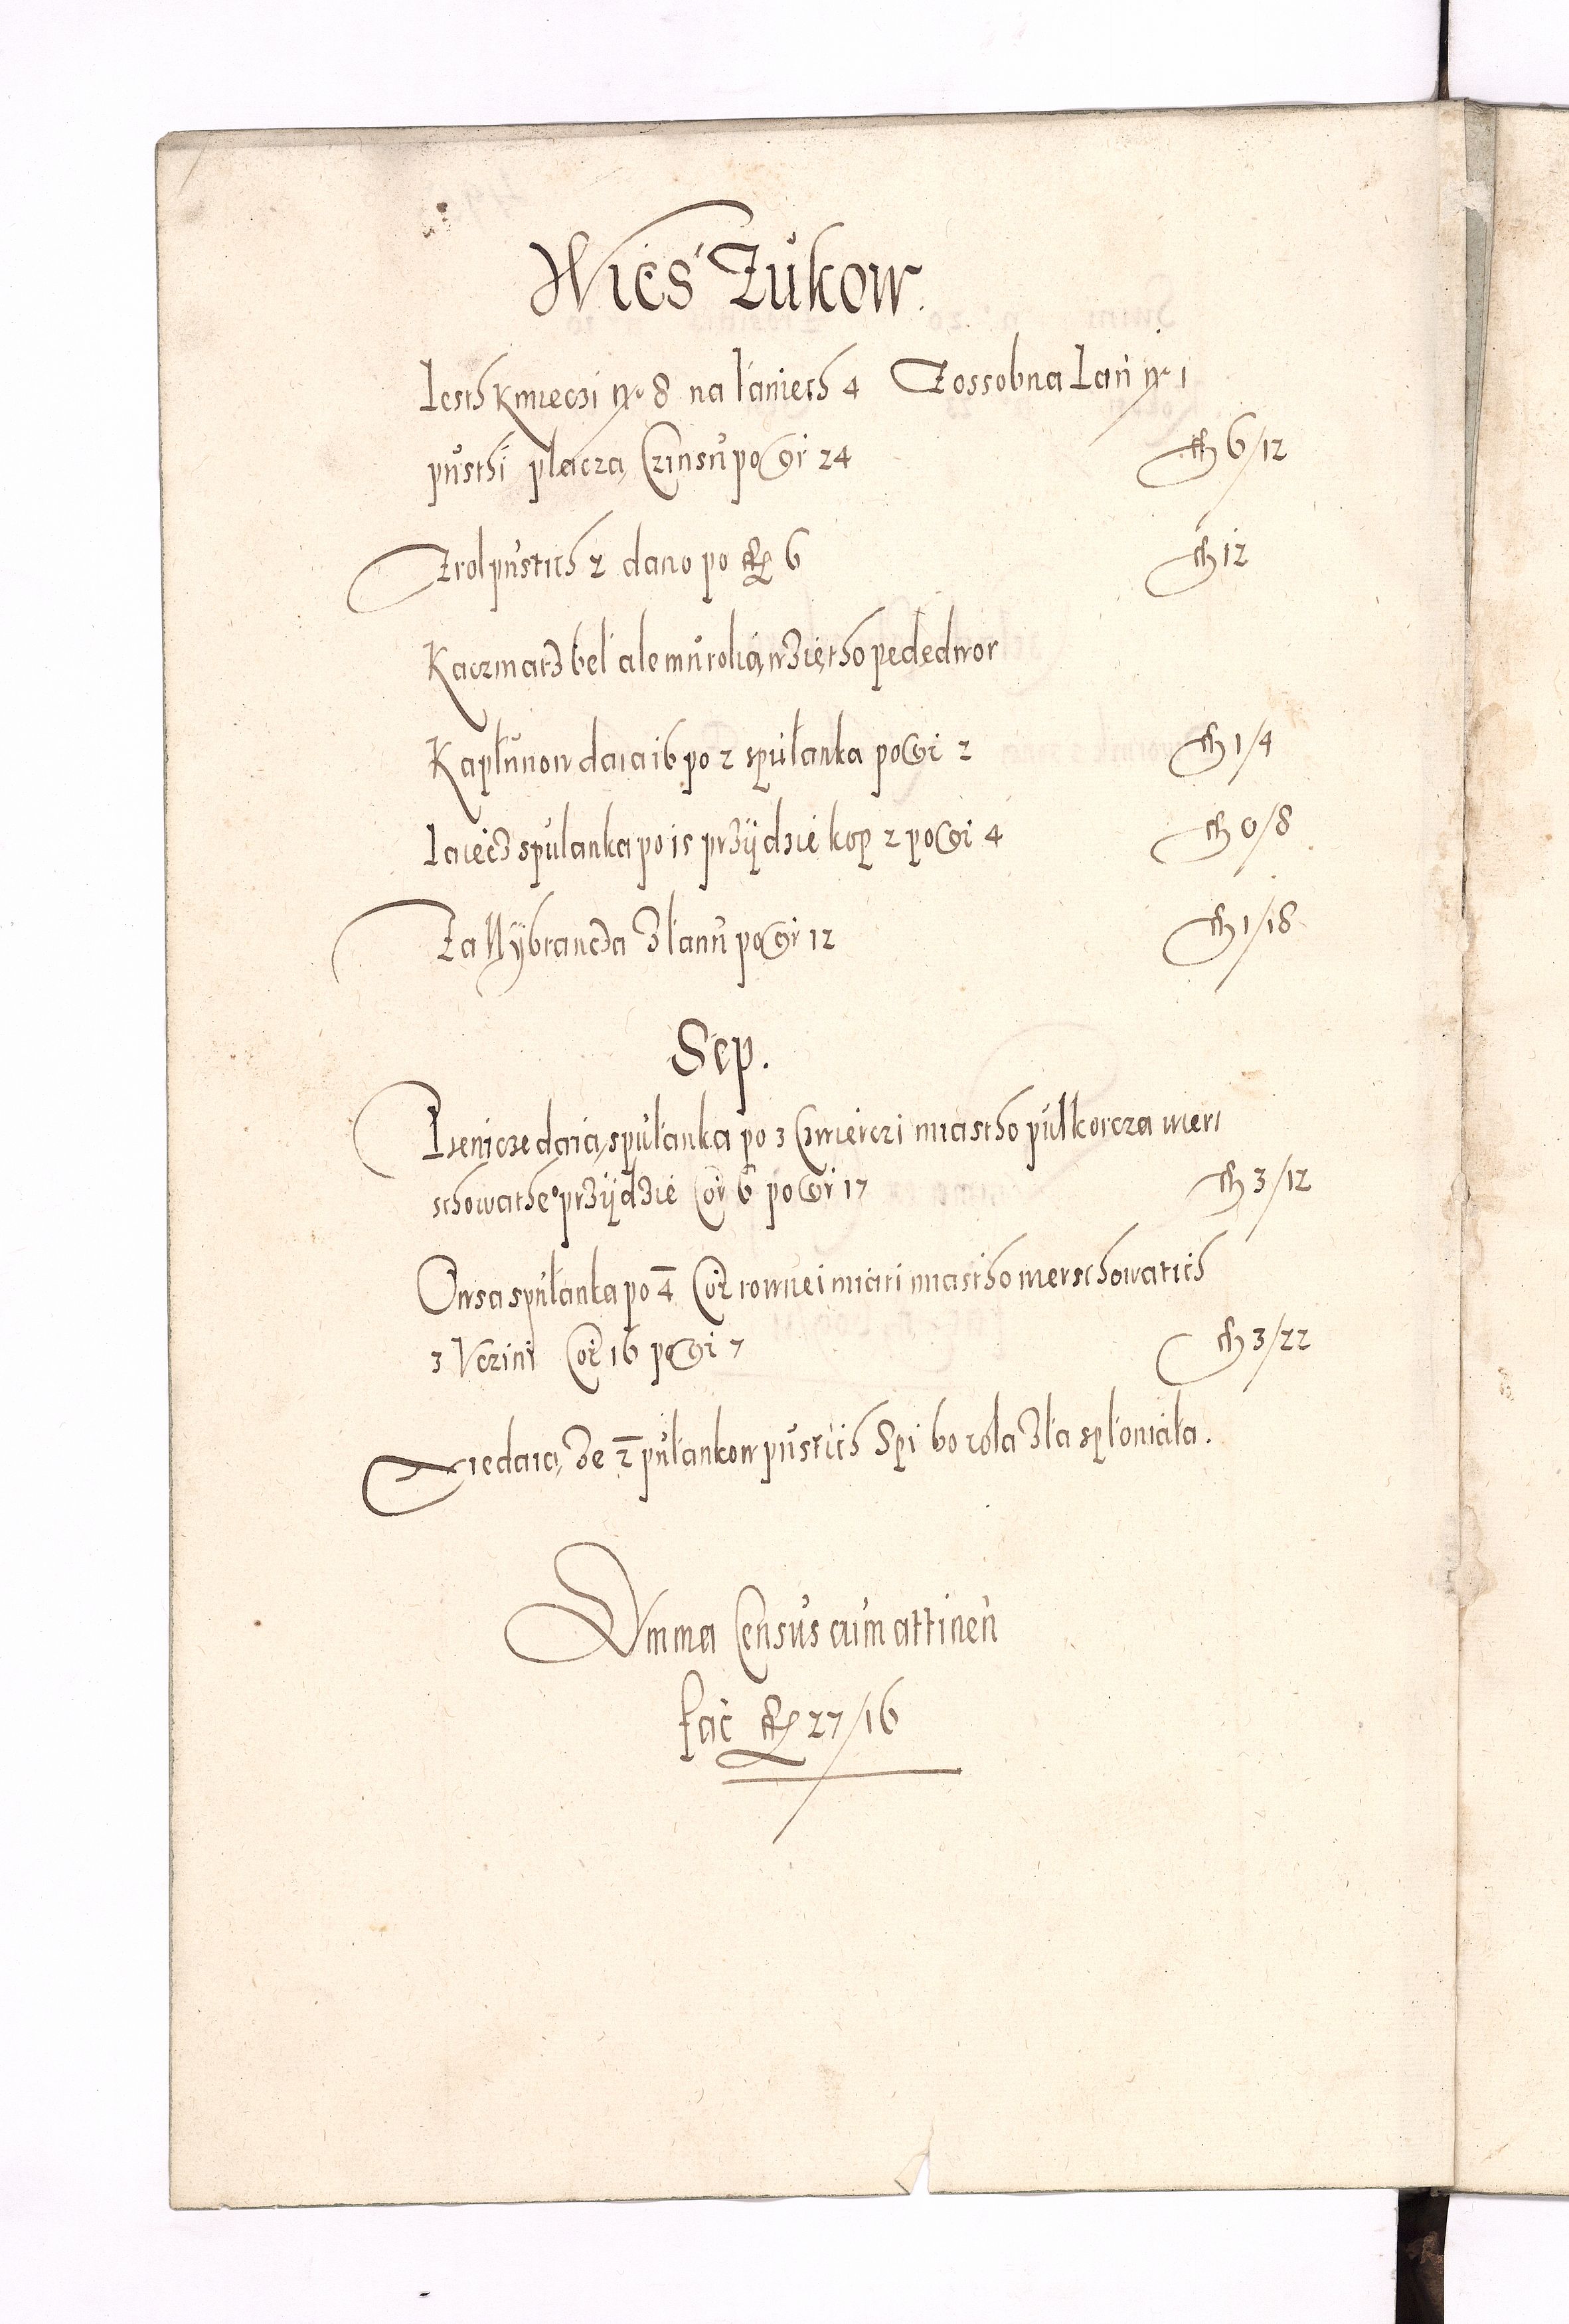 Wieś Zukow.
Iesth Kmieczi nro 8 na łaniech 4 Zossobna Łan nr 1
pusthi płacza Czinsu po Gr 24 fl 6/12
Z rol pustich 2 dano po fl 6 fl 12
Kaczmarz beł ale mu rolią wzietho pededwor
Kapłunow daia 16 po 2 s pułanka po Gr 2 fl 1/4
Iaiecz s pułanka po 15 przÿdzie kop 2 po Gr 4 fl 0/8
Za Wÿbrancza z łanu po Gr 12 fl 1/18
Sep.
Psenicze daią s pułanka po 3 Czwierczi miastho pułkorcza wier
schowathego przÿdzie Cor 6 po Gr 17 fl 3/12
Owsa s pułanka po 4 Cor rownei miari miastho wierschowatich
3 Vczini Cor 16 po Gr 7 fl 3/22
Nie daią ze 2 pułankow pustich Spi bo rola zła spłoniała.
Summa Census cum attinen
fac fl 27/16